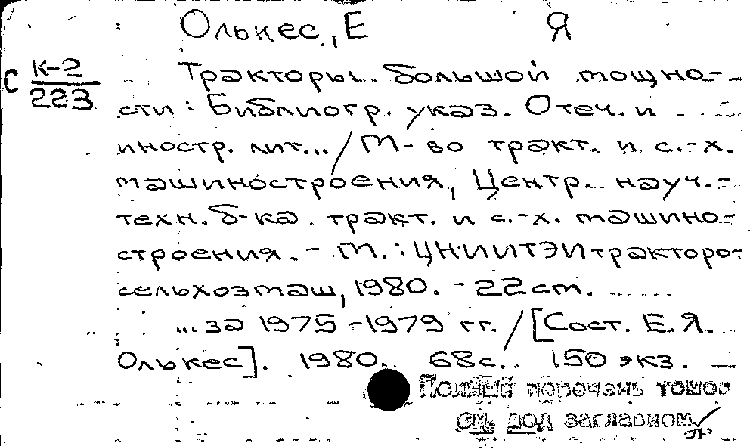 Олькес, Е Я
С К-2
223
Тракторы большой мощно-
сти: Библиогр. указ. Отеч. и
иностр. лит... / М-во тракт. и с.-х.
машиностроения, Центр. науч.-
техн. б-ка тракт. и с.-х. машино-
строения. - М.: ЦНИИТЭИтракторо-
сельхозмаш, 1980. - 22 см.
... за 1975-1979 гг. / [Сост. Е.Я.
Олькес]. 1980. 68 с. 150 экз.
Полный перечень томов
см. под заглавием